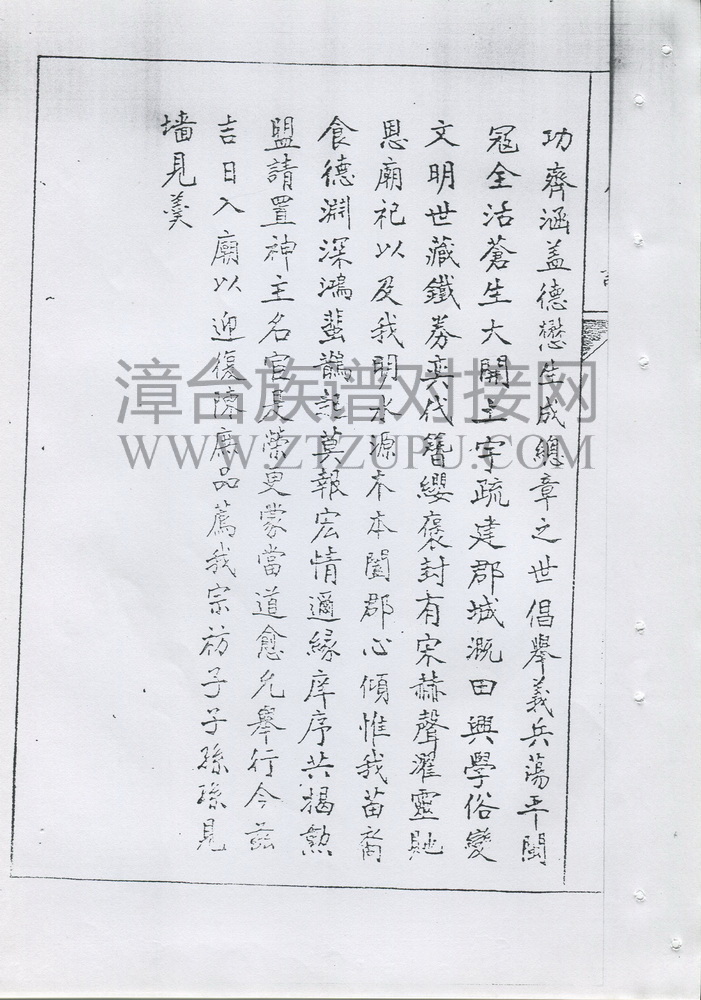 功齊涵盖德懋生成總章之世倡舉義兵蕩平閩
冦全活蒼生大開土宇疏建郡城溉田興學俗變
文明世藏鐵券奕代簪纓褒封有宋赫聲濯靈貤
恩廟祀以及我明水源木本闔郡心傾惟我苗裔
食德淵深鴻蜚鵲起莫報宏情適緣庠序共揭勲
盟請置神主名宦是榮叟蒙當道愈允舉行今茲
吉日入廟以迎復陳庶品薦我宗祊子子孫孫見
墙見羹
漳台族谱对接网
WWW.ZTZUPU.COM